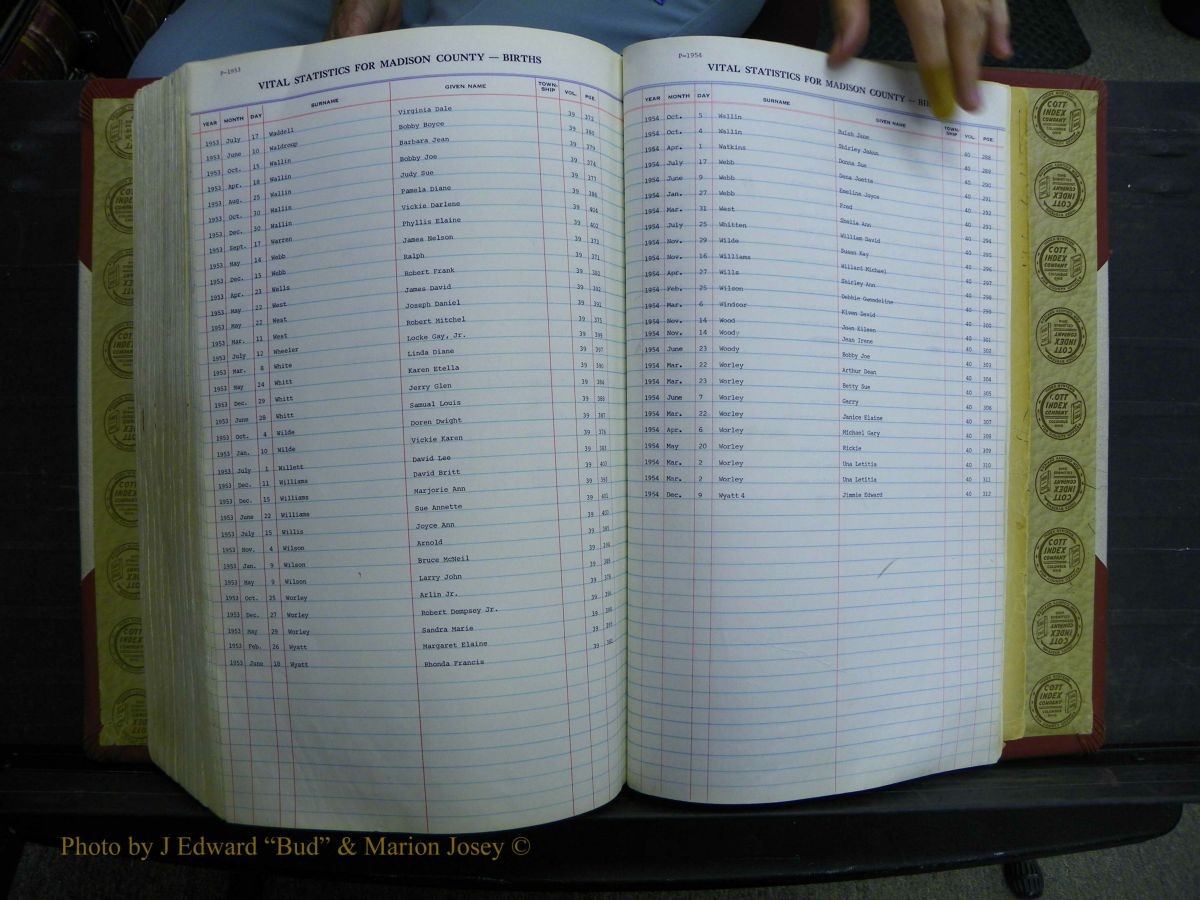 P-1953
VITAL STATISTICS FOR MADISON COUNTY — BIRTHS
YEAR MONTH DAY SURNAME GIVEN NAME TOWN-SHIP VOL. PGE.
1953 July 17 Waddell Virginia Dale 39 372
1953 June 10 Waldroup Bobby Boyce 39 380
1953 Oct. 15 Wallin Barbara Jean 39 379
1953 Apr. 18 Wallin Bobby Joe 39 374
1953 Aug. 25 Wallin Judy Sue 39 377
1953 Oct. 30 Wallin Pamela Diane 39 386
1953 Dec. 30 Wallin Vickie Darlene 39 404
1953 Sept. 17 Warren Phyllis Elaine 39 402
1953 May 14 Webb James Nelson 39 373
1953 Dec. 15 Webb Ralph 39 371
1953 Apr. 23 Wells Robert Frank 39 382
1953 May 22 West James David 39
1953 May 22 West Joseph Daniel 39
1953 Mar. 11 West Robert Mitchel 39 375
1953 July 12 Wheeler Locke Gay, Jr. 39
1953 Mar. 8 White Linda Diane 39
1953 May 24 Whitt Karen Etella 39
1953 Dec. 29 Whitt Jerry Glen 39
1953 June 28 Whitt Samual Louis 39
1953 Oct. 4 Wilde Doren Dwight 39 387
1953 Jan. 10 Wilde Vickie Karen 39 376
1953 July 1 Willett David Lee 39
1953 Dec. 11 Williams David Britt 39 403
1953 Dec. 15 Williams Marjorie Ann 39
1953 June 22 Williams Sue Annette 39 401
1953 July 15 Willis Joyce Ann 39
1953 Nov. 4 Wilson Arnold 39
1953 Jan. 9 Wilson Bruce McNeil 39
1953 May 9 Wilson Larry John 39
1953 Oct. 25 Worley Arlin Jr. 39
1953 Dec. 27 Worley Robert Dempsey Jr. 39
1953 May 29 Worley Sandra Marie 39
1953 Feb. 26 Wyatt Margaret Elaine 39
1953 June 18 Wyatt Rhonda Francis 39
P-1954
VITAL STATISTICS FOR MADISON COUNTY — BI
YEAR MONTH DAY SURNAME GIVEN NAME TOWN-SHIP VOL. PGE.
1954 Oct. 5 Wallin Jane 40 288
1954 Oct. 4 Wallin Shirley JoAnn 40 289
1954 Apr. 1 Watkins Donna Sue 40 290
1954 July 17 Webb Dena Joette 40 291
1954 June 9 Webb Emelina Joyce 40 292
1954 Jan. 27 Webb Fred 40 293
1954 Mar. 31 West Shelia Ann 40 294
1954 July 25 Whitten William David 40 295
1954 Nov. 29 Wilde Susan Kay 40 296
1954 Nov. 16 Williams Willard Michael 40 297
1954 Apr. 27 Wills Shirley Ann 40 298
1954 Feb. 25 Wilson Debbie Gwendeline 40 299
1954 Mar. 6 Windoor Kiven David 40 300
1954 Nov. 14 Wood Joan Eileen 40 301
1954 Nov. 14 Woody Jean Irene 40 302
1954 June 23 Woody Bobby Joe 40 303
1954 Mar. 22 Worley Arthur Dean 40 304
1954 Mar. 23 Worley Betty Sue 40
1954 June 7 Worley Garry 40 306
1954 Mar. 22 Worley Janice Elaine 40 307
1954 Apr. 6 Worley Michael Gary 40 308
1954 May 20 Worley Rickie 40 309
1954 Mar. 2 Worley Una Letitia 40 310
1954 Mar. 2 Worley Una Letitia 40 311
1954 Dec. 9 Wyatt 4 Jimmie Edward 40 312
COTT INDEX COMPANY COLUMBUS OHIO
Photo by J Edward “Bud” & Marion Josey ©